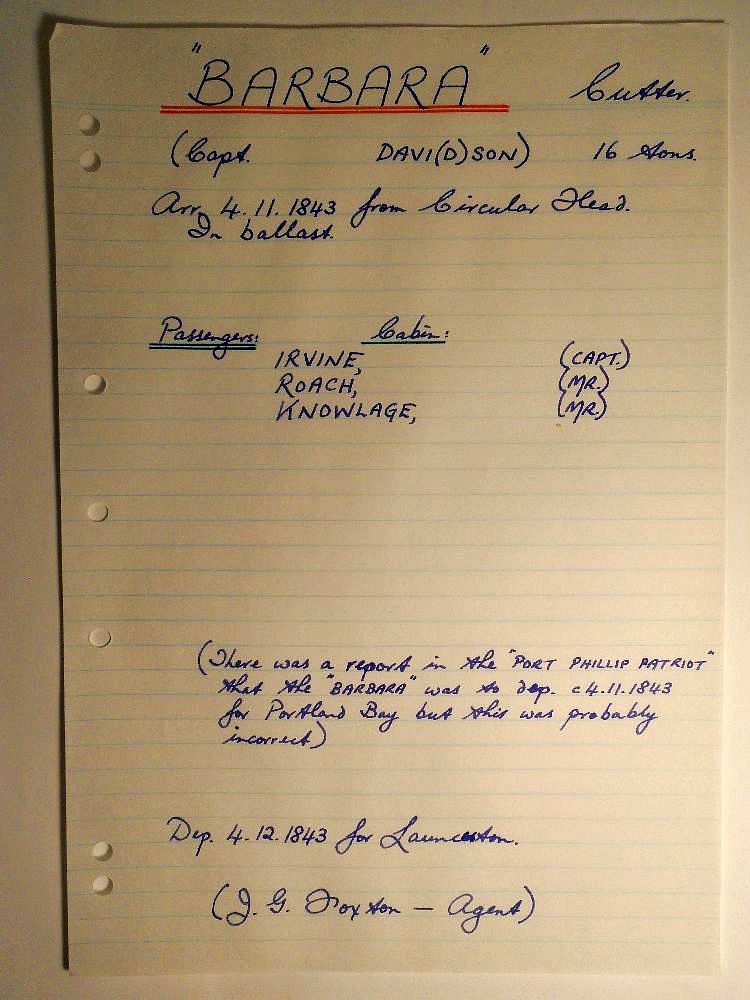 "BARBARA" Cutter.
(Capt. DAVI(D)SON) 16 tons.
Arr. 4.11.1843 from Circular Head.
In ballast.
Passengers: Cabin:
IRVINE, (CAPT.)
ROACH, (MR.)
KNOWLAGE, (MR.)
(There was a report in the "PORT PHILLIP PATRIOT"
that the "BARBARA" was to dep. c4.11.1843
for Portland Bay but this was probably
incorrect)
Dep. 4.12.1843 for Launceston.
(J. G. Foxton — Agent)